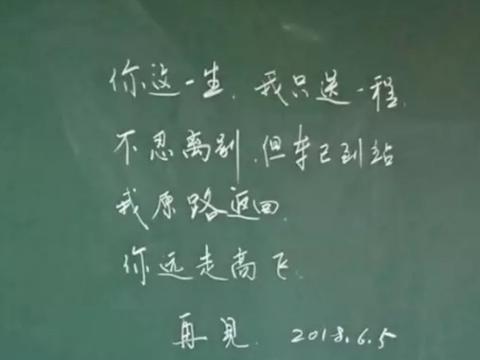 你这一生，我只送一程，
不忍离别，但车已到站
我原路返回，
你远走高飞，
再見. 2018.6.5